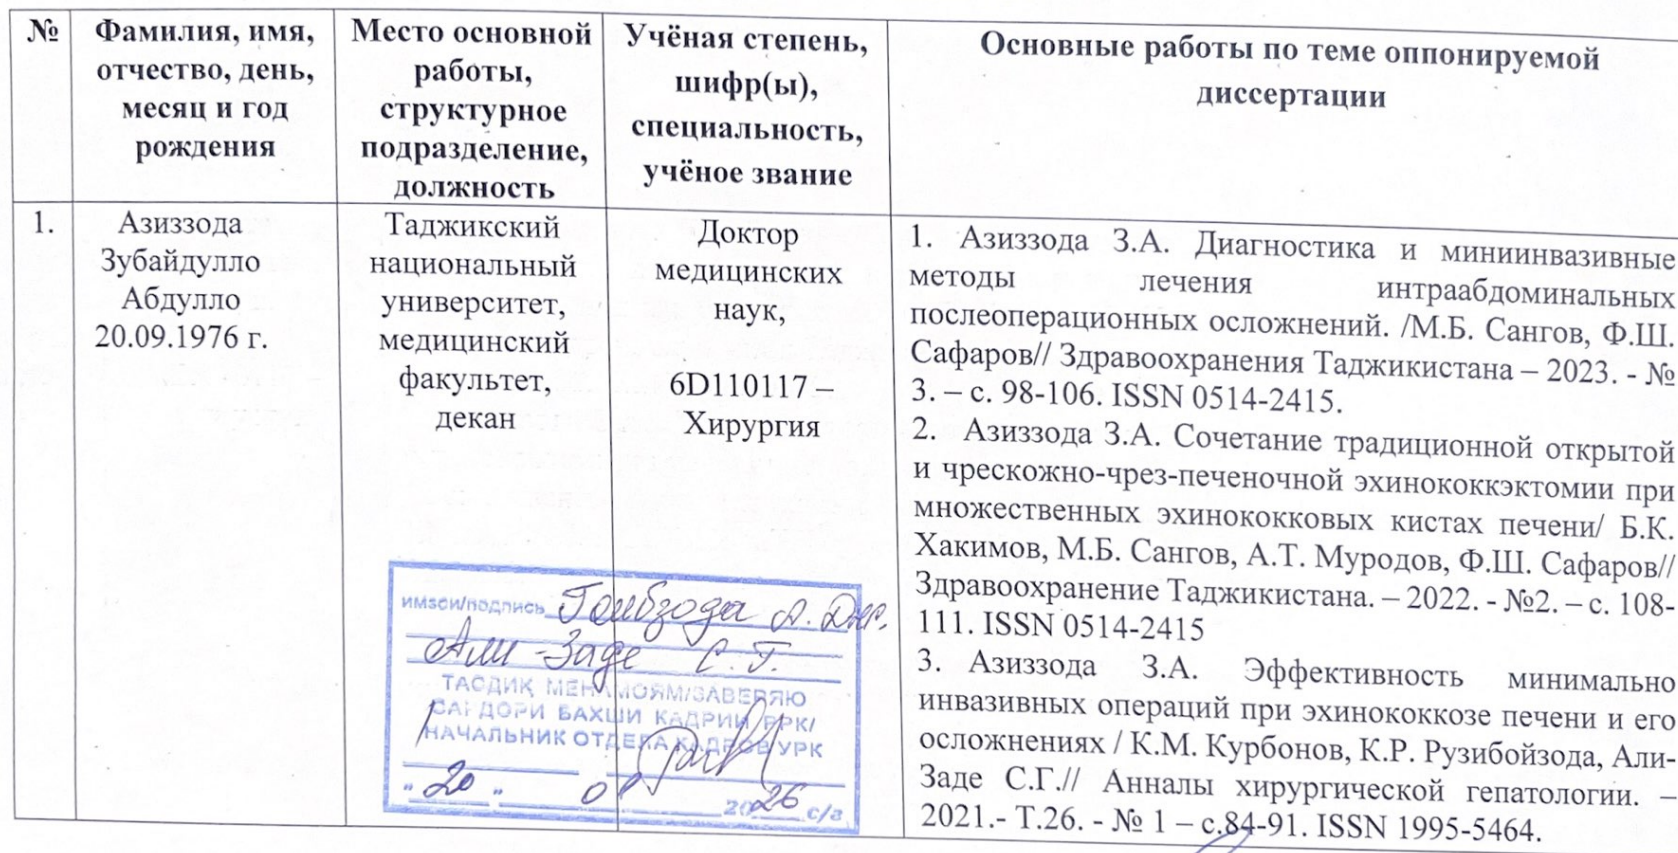 №
Фамилия, имя,
отчество, день,
месяц и год
рождения
Место основной
работы,
структурное
подразделение,
должность
Учёная степень,
шифр(ы),
специальность,
учёное звание
Основные работы по теме оппонируемой
диссертации
1.
Азиззода
Зубайдулло
Абдулло
20.09.1976 г.
Таджикский
национальный
университет,
медицинский
факультет,
декан
Доктор
медицинских
наук,
6D110117 –
Хирургия
1. Азиззода З.А. Диагностика и миниинвазивные
методы лечения интраабдоминальных
послеоперационных осложнений. /М.Б. Сангов, Ф.Ш.
Сафаров// Здравоохранения Таджикистана – 2023. - №
3. – с. 98-106. ISSN 0514-2415.
2. Азиззода З.А. Сочетание традиционной открытой
и чрескожно-чрез-печеночной эхинококкэктомии при
множественных эхинококковых кистах печени/ Б.К.
Хакимов, М.Б. Сангов, А.Т. Муродов, Ф.Ш. Сафаров//
Здравоохранение Таджикистана. – 2022. - №2. – с. 108-
111. ISSN 0514-2415
3. Азиззода З.А. Эффективность минимально
инвазивных операций при эхинококкозе печени и его
осложнениях / К.М. Курбонов, К.Р. Рузибойзода, Али-
Заде С.Г.// Анналы хирургической гепатологии. –
2021.- Т.26. - № 1 – с.84-91. ISSN 1995-5464.
имзои/подпись Гоибзода А. Дж.
Али-Заде С.Г.
ТАСДИҚ МЕНАМОЯМ/ЗАВЕРЯЮ
САРДОРИ БАХШИ КАДРИИ РРК/
НАЧАЛЬНИК ОТДЕЛА КАДРОВ УРК
" 20 " 2026 с/г